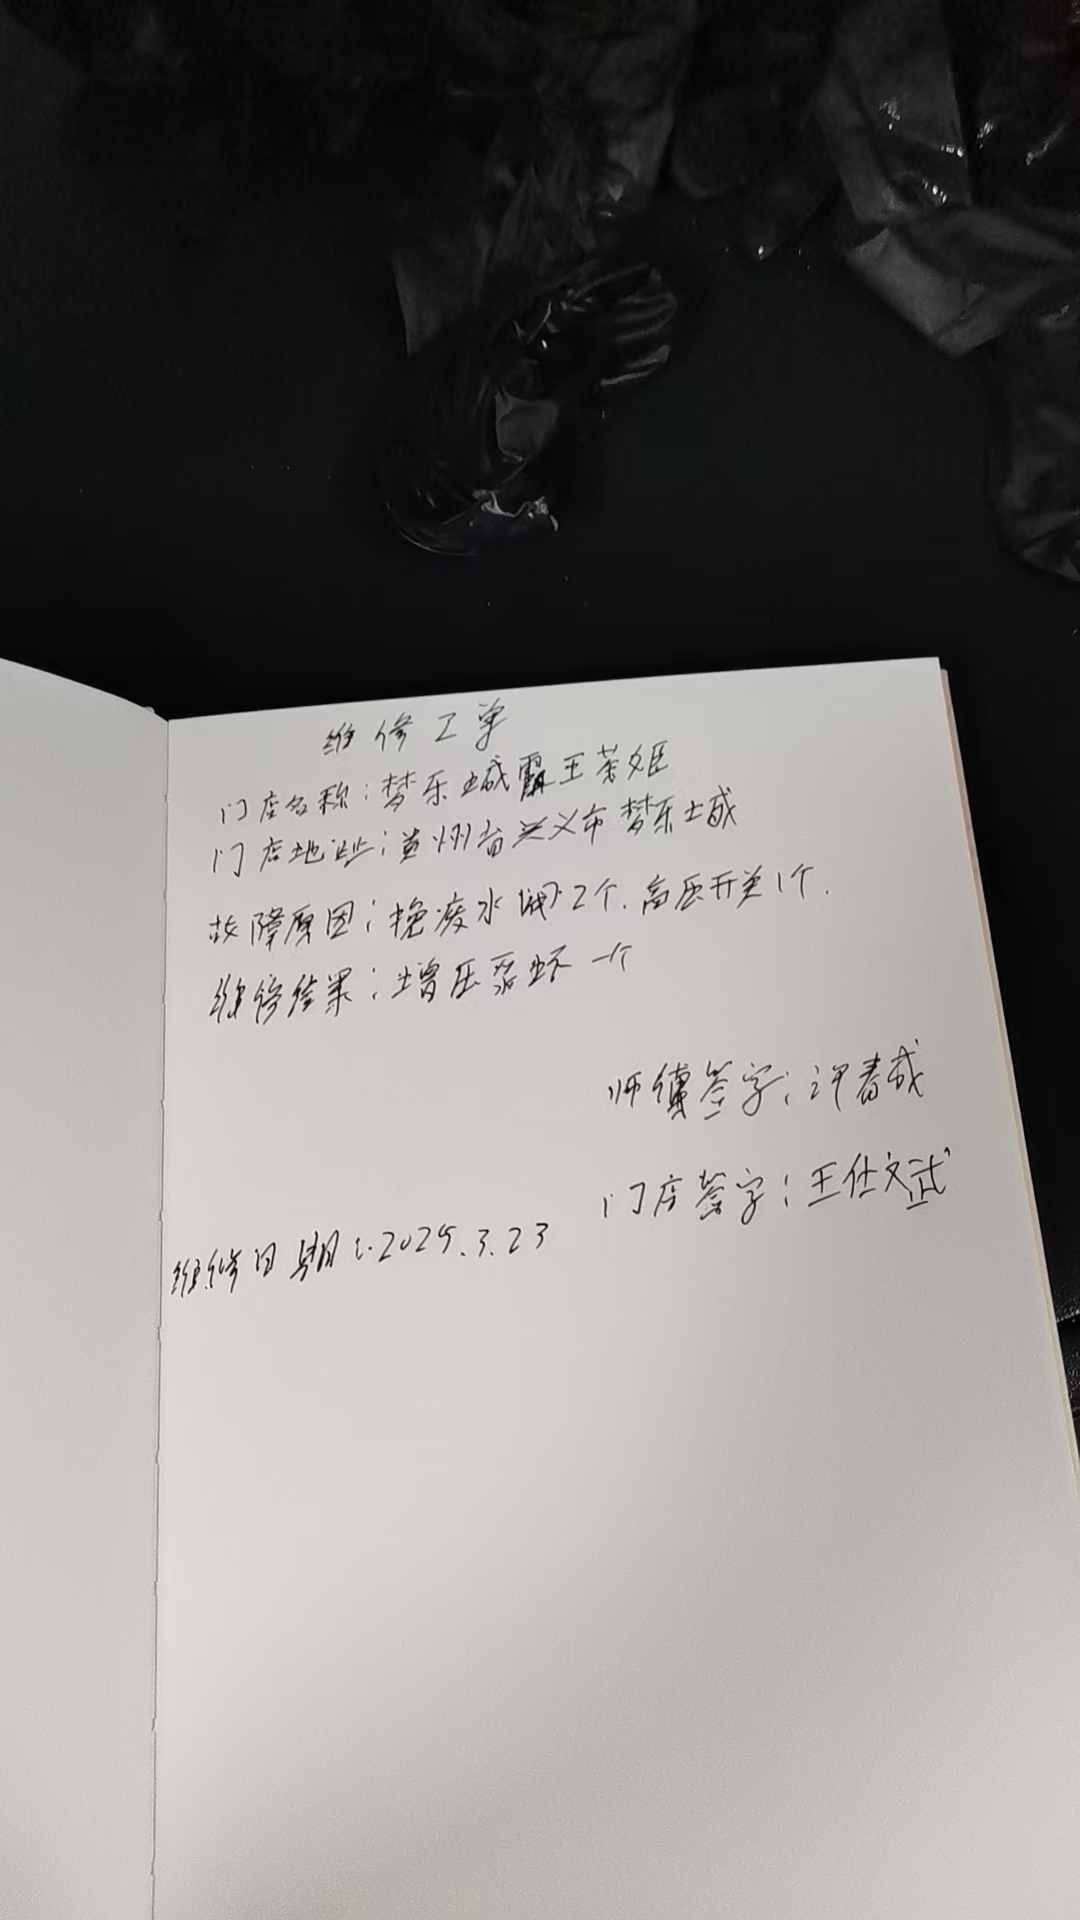 维修工单
门店名称：梦乐城霸王茶姬
门店地址：贵州省兴义市梦乐城
故障原因：换废水阀2个.高压开关1个.
维修结果：增压泵坏一个
师傅签字：许春成
门店签字：王仕文武
维修日期：2025.3.23